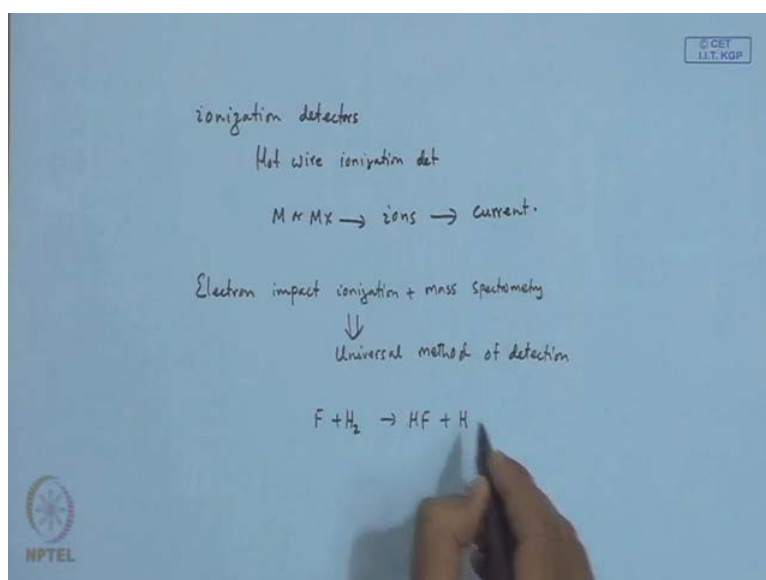 © CET
I.I.T. KGP
ionization detectors
Hot wire ionization det
M or MX → ions → current.
Electron impact ionization + mass spectrometry
⇓
Universal method of detection
F + H₂ → HF + H
NPTEL